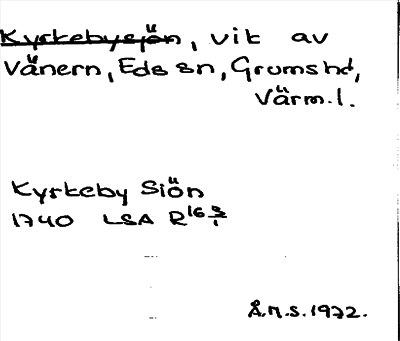 Kyrkebysjön, vik av
Vänern, Eds sn, Grums hd,
Värm.l.
Kyrkeby Siön
1740 LSA R16 3/1
Å.M.S. 1972.